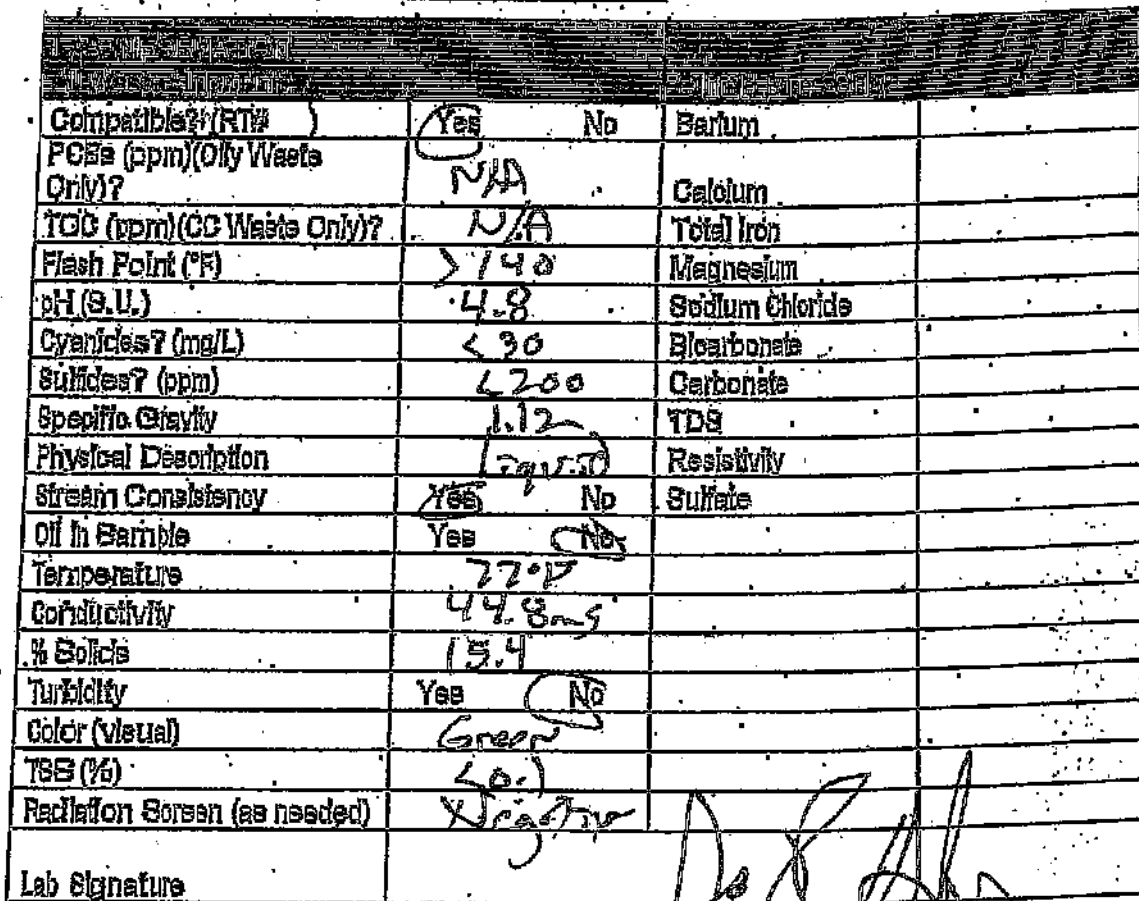 Compatible? (RT# ) Yes No Barium
PCBs (ppm)(Oily Waste
Only)? N/A Calcium
TOC (ppm)(CC Waste Only)? N/A Total Iron
Flash Point (°F) >140 Magnesium
pH (S.U.) 4.8 Sodium Chloride
Cyanides? (mg/L) <30 Bicarbonate
Sulfides? (ppm) <200 Carbonate
Specific Gravity 1.12 TDS
Physical Description Liquid Resistivity
Stream Consistency Yes No Sulfate
Oil in Sample Yes No
Temperature 77°F
Conductivity 44.8ms
% Solids 15.4
Turbidity Yes No
Color (visual) Green
TSS (%) <0.1
Radiation Screen (as needed) Negative
Lab Signature